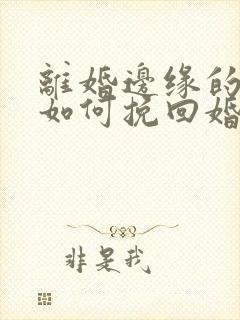 離婚邊缘的
如何挽回婚
非是我